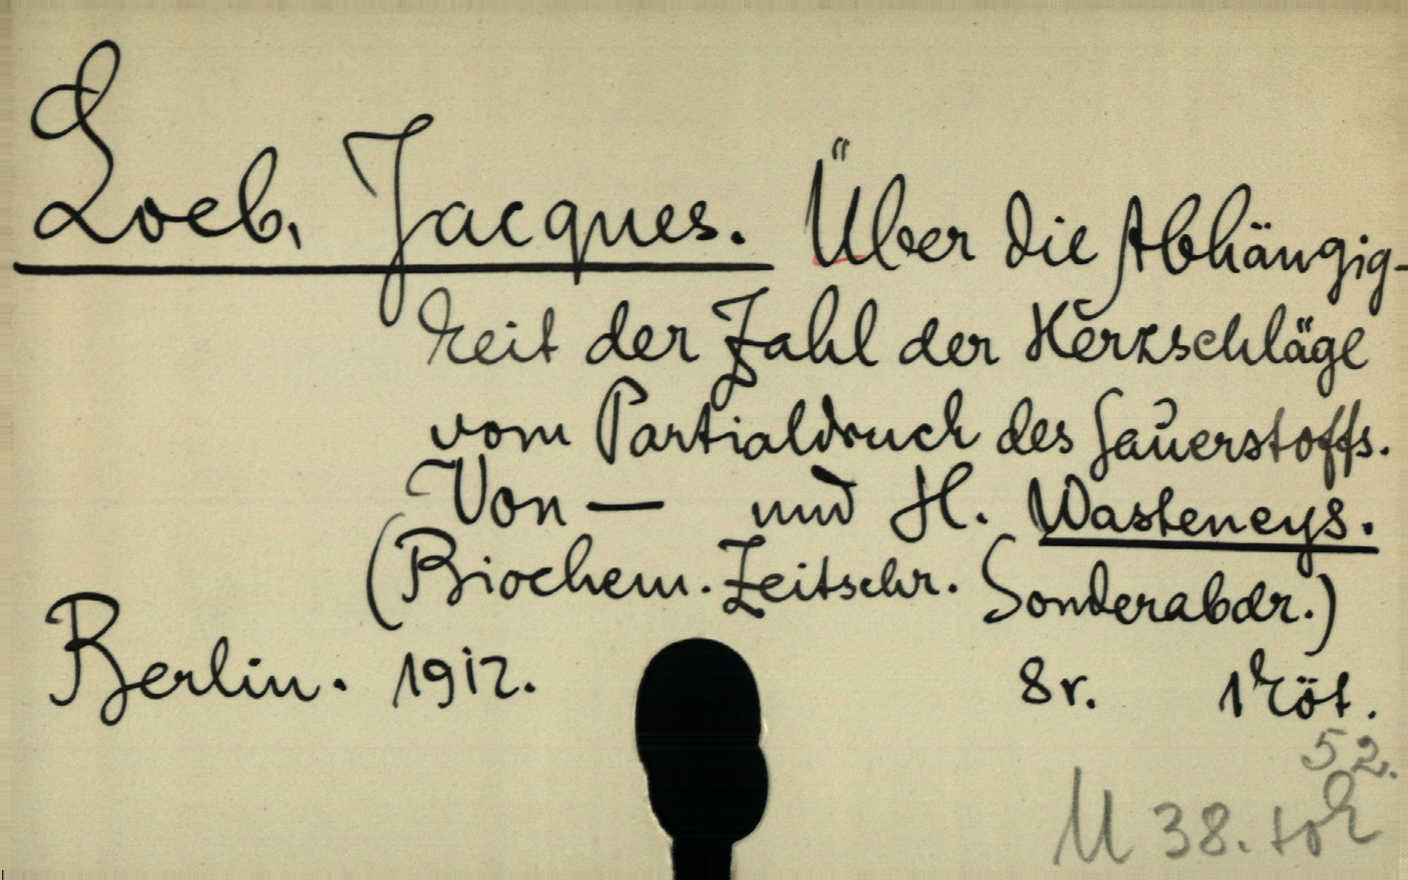 Loeb, Jacques. Über die Abhängig-
keit der Zahl der Herzschläge
vom Partialdruck des Sauerstoffs.
Von — und H. Wasteneys.
(Biochem. Zeitschr. Sonderabdr.)
Berlin. 1912. 8r. 1 köt.
52.
M 38. tok